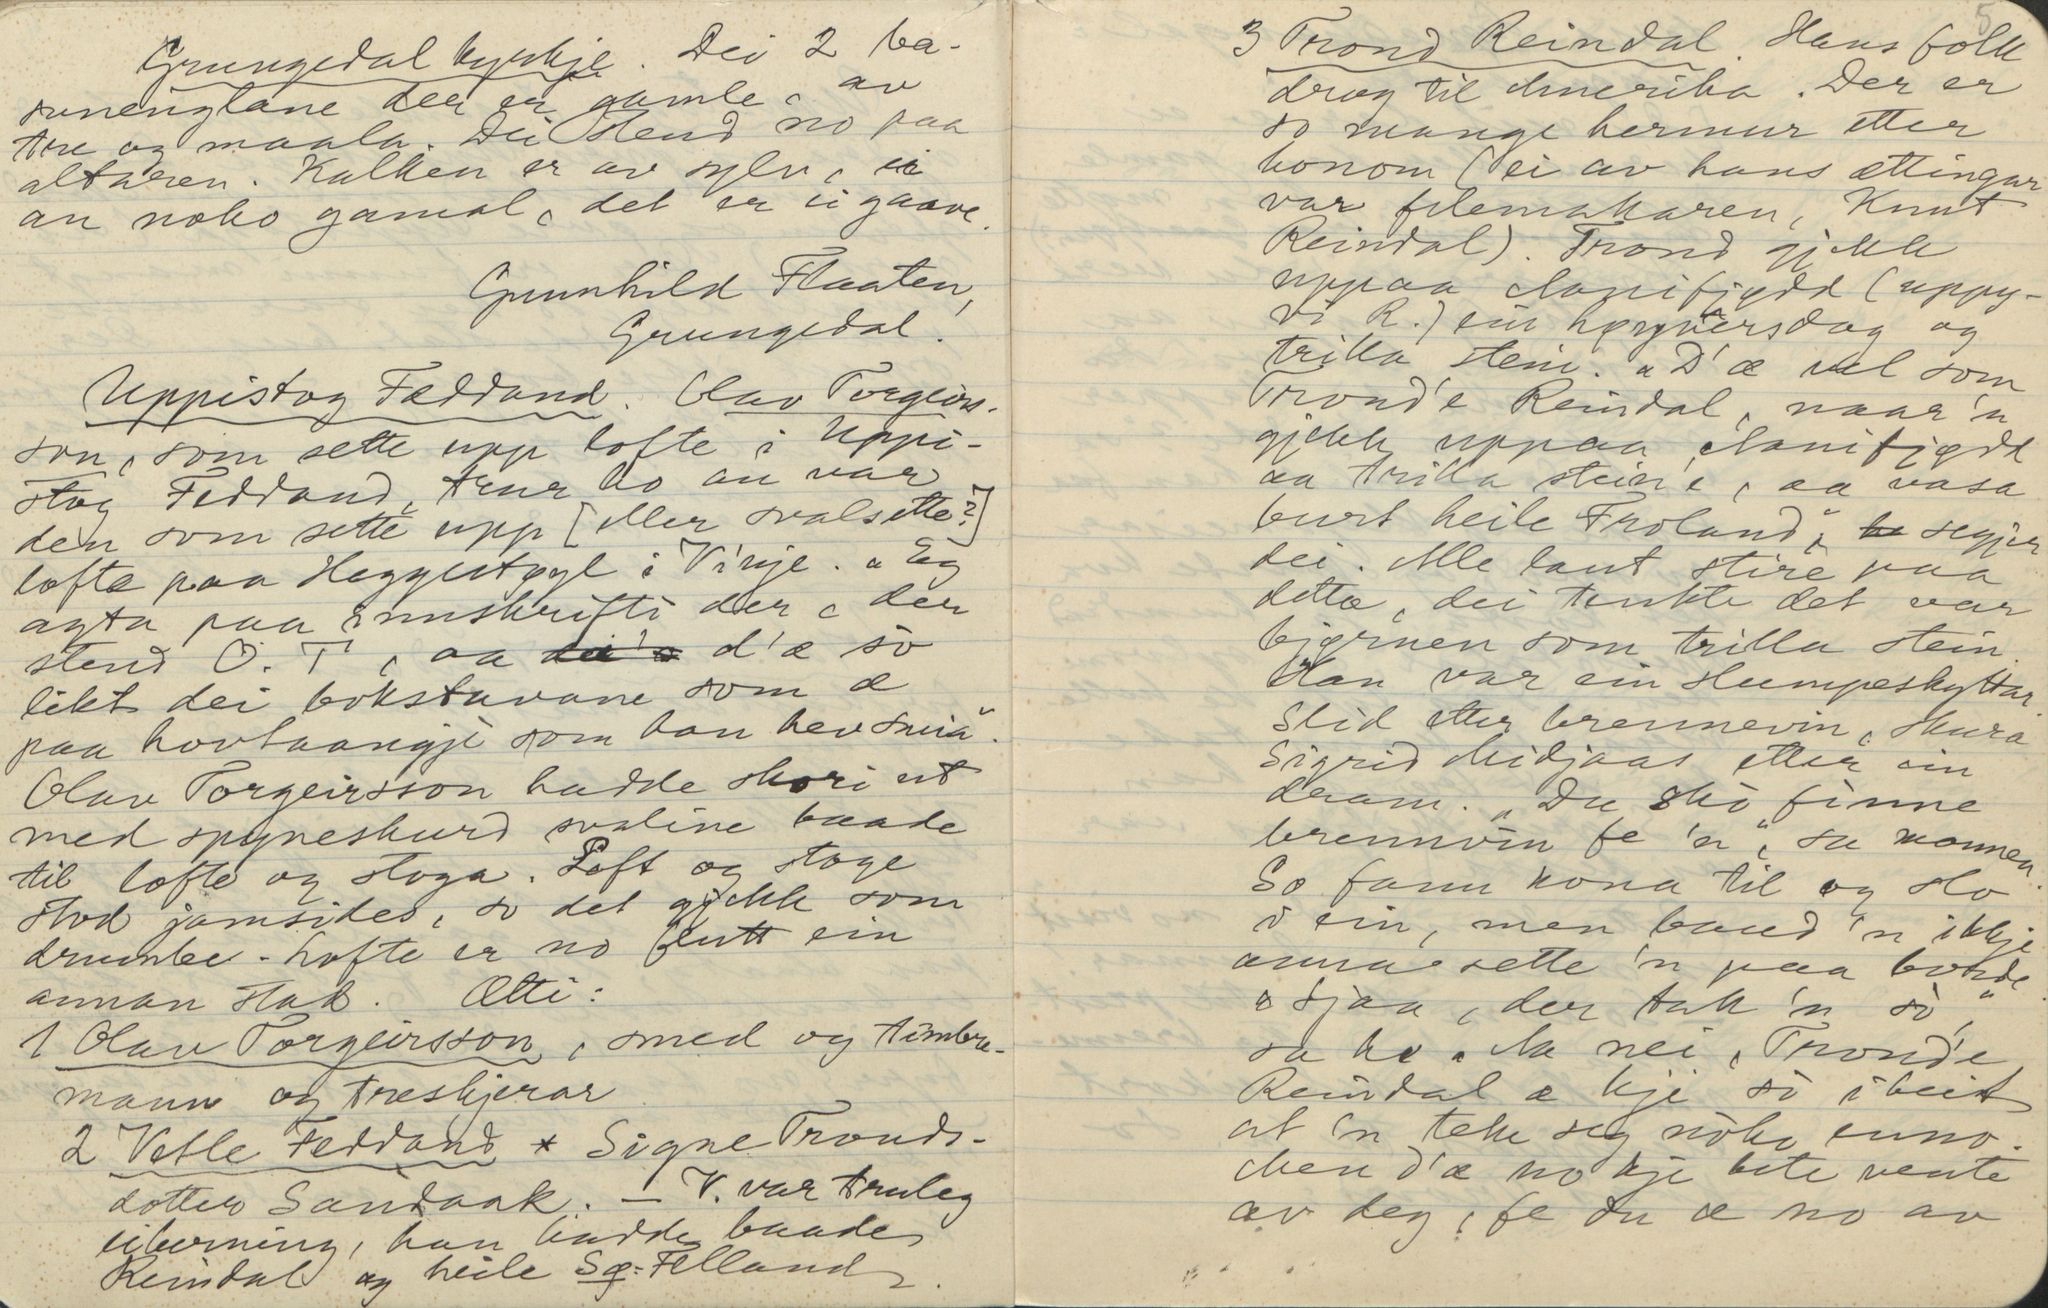 Grungedal kyrkje. Dei 2 ba-
sunenglane der er gamle, av
tre og maala. Dei stend no paa
altaren. Kalken er av sylv, ei
an noko gamal, det er ei gaave.
Gunnhild Flaaten,
Grungedal.
Uppistog Fæddand. Olav Torgeirs-
son, som sette upp lofte i Uppi-
stog Feddand, trur ho an var
den som sette upp [eller svalsette?]
lofte paa Heggestøyl i Vinje. "Eg
agta paa innskrifti der, der
stend O. T, aa d'æ so
likt dei bokstavane som æ
paa hovtaangji som han hev smia".
Olav Torgeirsson hadde skori ut
med spyneskurd svaline baade
til lofte og stoga. Loft og stoge
stod jamsides, so det gjekk som
drumbe. Lofte er no flutt ein
annan stad. Ætti:
1 Olav Torgeirsson, smed og timbre-
mann og treskjerar
2 Vetle Feddand * Signe Tronds-
dotter Sandaak. — V. var truleg
eiborning, han hadde baade
Reindal og heile Sø-Felland.
5
3 Trond Reindal. Hans folk
drog til Amerika. Der er
so mange hermur etter
honom (ei av hans ættingar
var felemakaren, Knut
Reindal). Trond gjekk
uppaa Nonifjødd (uppy-
vi R.) ein høgversdag og
trilla stein. "D'æ vel som
Trond'e Reindal, naar 'n
gjekk uppaa Nonifjødd
aa trilla stein'e, aa rasa
burt heile Froland", segjer
dei. Alle laut stire paa
dette, dei tenkte det var
bjørnen som trilla stein.
Han var ein slumpeskyttar.
Slid etter brennevin, skura
Sigrid Midjaas etter ein
dram. "Du sko finne
brennvin fe 'n", sa mannen.
So fann kona til og slo
i ein, men baud 'n ikkje
anna sette 'n paa borde.
"Sjaa, der tak 'n so",
sa ho. "Aa nei, Trond'e
Reindal æ kje so i beit
at 'n tekk seg noko enno.
Men d'æ no kje bete vente
av deg, fe du æ no av